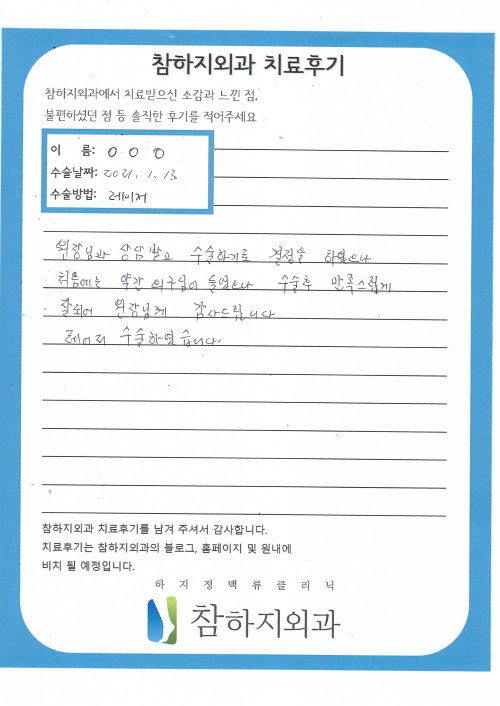 참하지외과 치료후기
참하지외과에서 치료받으신 소감과 느낀 점,
불편하셨던 점 등 솔직한 후기를 적어주세요
이 름: O O O
수술날짜: 2021. 1. 13
수술방법: 레이저
원장님과 상담받고 수술하기로 결정을 하였으나
처음에는 약간 의구심이 들었으나 수술후 만족스럽게
잘되어 원장님께 감사드립니다
레이저 수술하였습니다.
참하지외과 치료후기를 남겨 주셔서 감사합니다.
치료후기는 참하지외과의 블로그, 홈페이지 및 원내에
비치 될 예정입니다.
하지정맥류클리닉
참하지외과